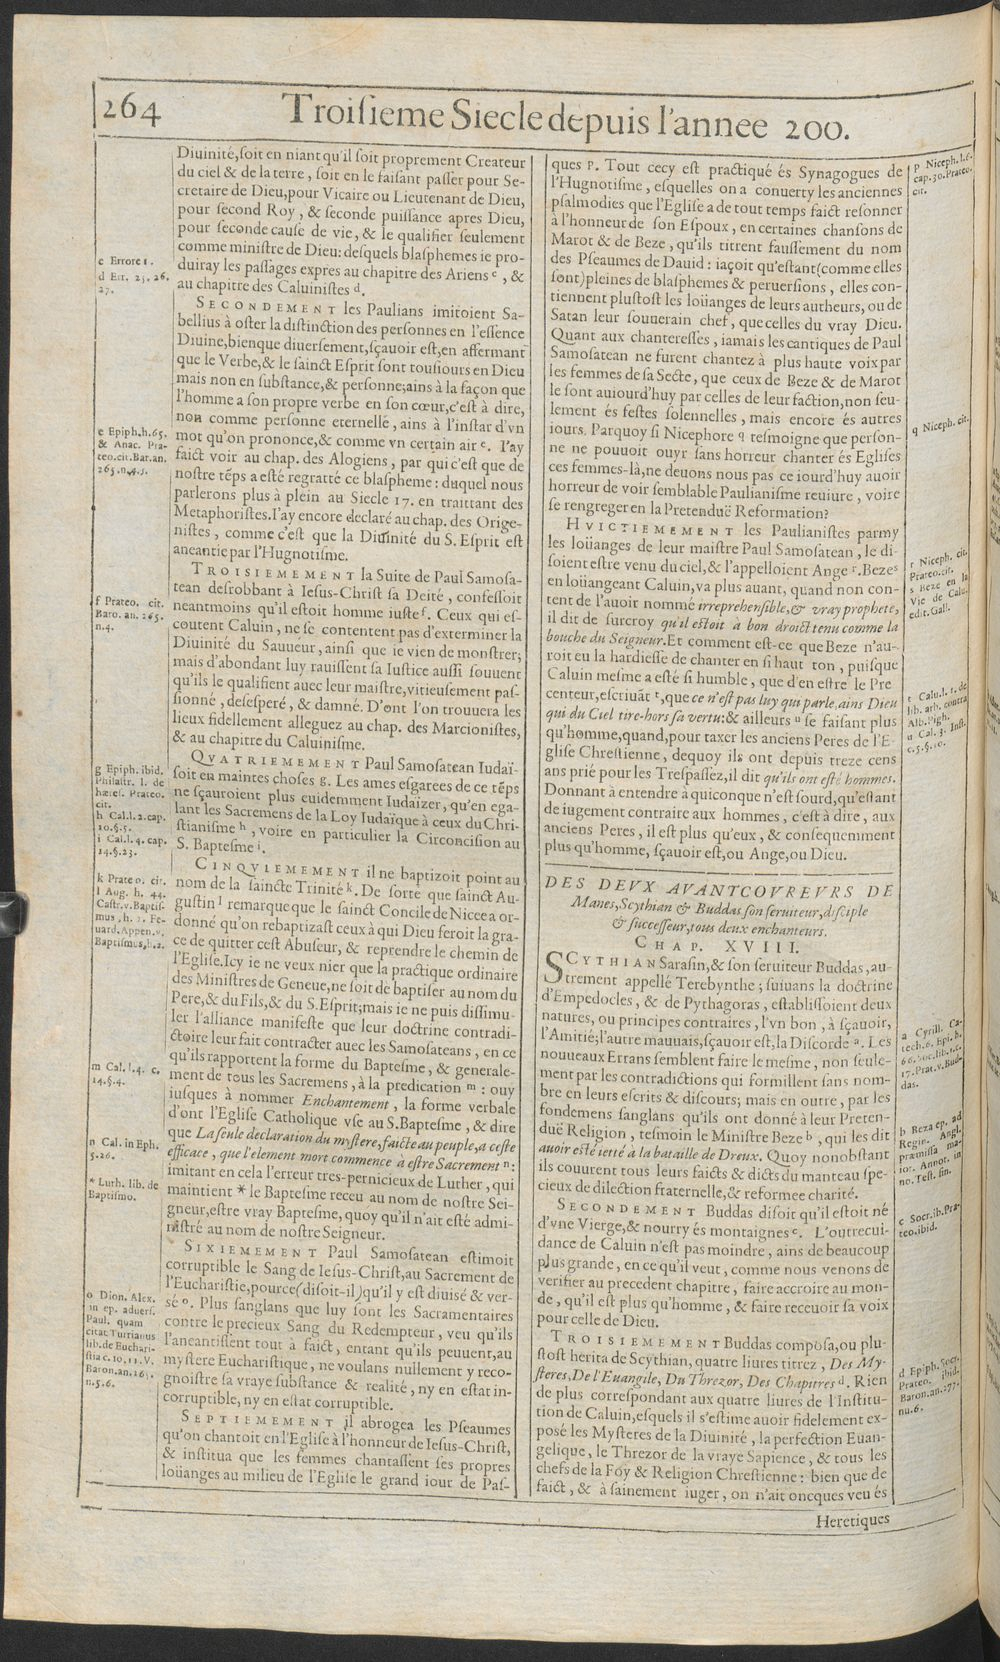 264
Troiſieme Siecle depuis l'annee 200.
Diuinité, ſoit en niant qu'il ſoit proprement Createur
du ciel & de la terre, ſoit en le faiſant paſſer pour Se-
cretaire de Dieu, pour Vicaire ou Lieutenant de Dieu,
pour ſecond Roy, & ſeconde puiſſance apres Dieu,
pour ſeconde cauſe de vie, & le qualifier ſeulement
comme miniſtre de Dieu: deſquels blaſphemes ie pro-
duiray les paſſages expres au chapitre des Ariens c, &
au chapitre des Caluiniſtes d.
SECONDEMENT les Paulians imitoient Sa-
bellius à oſter la diſtinction des perſonnes en l'eſſence
Diuine, bienque diuerſement, ſçauoir eſt, en affermant
que le Verbe, & le ſainct Eſprit ſont touſiours en Dieu
mais non en ſubſtance, & perſonne; ains à la façon que
l'homme a ſon propre verbe en ſon cœur, c'eſt à dire,
non comme perſonne eternelle, ains à l'inſtar d'vn
mot qu'on prononce, & comme vn certain air e. I'ay
faict voir au chap. des Alogiens, par qui c'eſt que de
noſtre tẽps a eſté regratté ce blaſpheme: duquel nous
parlerons plus à plein au Siecle 17. en traittant des
Metaphoriſtes. I'ay encore declaré au chap. des Orige-
niſtes, comme c'eſt que la Diuinité du S. Eſprit eſt
aneantie par l'Hugnotiſme.
TROISIEMEMENT la Suite de Paul Samoſa-
tean deſrobbant à Ieſus-Chriſt ſa Deité, confeſſoit
neantmoins qu'il eſtoit homme iuſte f. Ceux qui eſ-
coutent Caluin, ne ſe contentent pas d'exterminer la
Diuinité du Sauueur, ainſi que ie vien de monſtrer;
mais d'abondant luy rauiſſent ſa Iuſtice auſſi ſouuent
qu'ils le qualifient auec leur maiſtre, vitieuſement paſ-
ſionné, deſeſperé, & damné. D'ont l'on trouuera les
lieux fidellement alleguez au chap. des Marcioniſtes,
& au chapitre du Caluiniſme.
QVATRIEMEMENT Paul Samoſatean Iudaï-
ſoit en maintes choſes g. Les ames eſgarees de ce tẽps
ne ſçauroient plus euidemment Iudaïzer, qu'en ega-
lant les Sacremens de la Loy Iudaïque à ceux du Chri-
ſtianiſme h, voire en particulier la Circonciſion au
S. Bapteſme i.
CINQVIEMEMENT il ne baptizoit point au
nom de la ſaincte Trinité k. De ſorte que ſainct Au-
guſtin l remarque que le ſainct Concile de Nicee a or-
donné qu'on rebaptizaſt ceux à qui Dieu feroit la gra-
ce de quitter ceſt Abuſeur, & reprendre le chemin de
l'Egliſe. Icy ie ne veux nier que la practique ordinaire
des Miniſtres de Geneue, ne ſoit de baptiſer au nom du
Pere, & du Fils, & du S. Eſprit; mais ie ne puis diſſimu-
ler l'alliance manifeſte que leur doctrine contradi-
ctoire leur fait contracter auec les Samoſateans, en ce
qu'ils rapportent la forme du Bapteſme, & generale-
ment de tous les Sacremens, à la predication m: ouy
iuſques à nommer Enchantement, la forme verbale
d'ont l'Egliſe Catholique vſe au S. Bapteſme, & dire
que La ſeule declaration du myſtere, faicte au peuple, a ceſte
efficace, que l'element mort commence à eſtre Sacrement n:
imitant en cela l'erreur tres-pernicieux de Luther, qui
maintient * le Bapteſme receu au nom de noſtre Sei-
gneur, eſtre vray Bapteſme, quoy qu'il n'ait eſté admi-
niſtré au nom de noſtre Seigneur.
SIXIEMEMENT Paul Samoſatean eſtimoit
corruptible le Sang de Ieſus-Chriſt, au Sacrement de
l'Euchariſtie, pource (diſoit-il) qu'il y eſt diuiſé & ver-
sé o. Plus ſanglans que luy ſont les Sacramentaires
contre le precieux Sang du Redempteur, veu qu'ils
l'aneantiſſent tout à faict, entant qu'ils peuuent, au
myſtere Euchariſtique, ne voulans nullement y reco-
gnoiſtre ſa vraye ſubſtance & realité, ny en eſtat in-
corruptible, ny en eſtat corruptible.
SEPTIEMEMENT il abrogea les Pſeaumes
qu'on chantoit en l'Egliſe à l'honneur de Ieſus-Chriſt,
& inſtitua que les femmes chantaſſent ſes propres
loüanges au milieu de l'Egliſe le grand iour de Paſ-
c Errore 1.
d Err. 25. 26.
27.
e Epiph. h. 65.
& Anac. Pra-
teo. cit. Bar. an.
265. n. 4. 5.
f Prateo. cit.
Baro. an. 265.
n. 4.
g Epiph. ibid.
Philaſtr. l. de
hæreſ. Prateo.
cit.
h Cal. l. 2. cap.
10. §. 5.
i Cal. l. 4. cap.
14. §. 23.
k Prateo. cit.
l Aug. h. 44.
Caſtr. v. Baptiſ-
mus, h. 2. Fe-
uard. Appen. v.
Baptiſmus, h. 2.
m Cal. l. 4. c.
14. §. 4.
n Cal. in Eph.
5. 26.
* Luth. lib. de
Baptiſmo.
o Dion. Alex.
in ep. aduerſ.
Paul. quam
citat Turrianus
lib. de Euchari-
ſtia c. 10. 11. V.
Baron. an. 265.
n. 5. 6.
ques p. Tout cecy eſt practiqué és Synagogues de
l'Hugnotiſme, eſquelles on a conuerty les anciennes
pſalmodies que l'Egliſe a de tout temps faict reſonner
à l'honneur de ſon Eſpoux, en certaines chanſons de
Marot & de Beze, qu'ils titrent fauſſement du nom
des Pſeaumes de Dauid: iaçoit qu'eſtant (comme elles
ſont) pleines de blaſphemes & peruerſions, elles con-
tiennent pluſtoſt les loüanges de leurs autheurs, ou de
Satan leur ſouuerain chef, que celles du vray Dieu.
Quant aux chantereſſes, iamais les cantiques de Paul
Samoſatean ne furent chantez à plus haute voix par
les femmes de ſa Secte, que ceux de Beze & de Marot
le ſont auiourd'huy par celles de leur faction, non ſeu-
lement és feſtes ſolennelles, mais encore és autres
iours. Parquoy ſi Nicephore q teſmoigne que perſon-
ne ne pouuoit ouyr ſans horreur chanter és Egliſes
ces femmes-là, ne deuons nous pas ce iourd'huy auoir
horreur de voir ſemblable Paulianiſme reuiure, voire
ſe rengreger en la Pretenduë Reformation?
HVICTIEMEMENT les Paulianiſtes parmy
les loüanges de leur maiſtre Paul Samoſatean, le di-
ſoient eſtre venu du ciel, & l'appelloient Ange r. Beze s
en loüangeant Caluin, va plus auant, quand non con-
tent de l'auoir nommé irreprehenſible, & vray prophete,
il dit de ſurcroy qu'il eſtoit à bon droict tenu comme la
bouche du Seigneur. Et comment eſt-ce que Beze n'au-
roit eu la hardieſſe de chanter en ſi haut ton, puiſque
Caluin meſme a eſté ſi humble, que d'en eſtre le Pre
centeur, eſcriuãt t, que ce n'eſt pas luy qui parle, ains Dieu
qui du Ciel tire-hors ſa vertu: & ailleurs u ſe faiſant plus
qu'homme, quand, pour taxer les anciens Peres de l'E-
gliſe Chreſtienne, dequoy ils ont depuis treze cens
ans prié pour les Treſpaſſez, il dit qu'ils ont eſté hommes.
Donnant à entendre à quiconque n'eſt ſourd, qu'eſtant
de iugement contraire aux hommes, c'eſt à dire, aux
anciens Peres, il eſt plus qu'eux, & conſequemment
plus qu'homme, ſçauoir eſt, ou Ange, ou Dieu.
DES DEVX AVANTCOVREVRS DE
Manes, Scythian & Buddas ſon ſeruiteur, diſciple
& ſucceſſeur, tous deux enchanteurs.
CHAP. XVIII.
SCYTHIAN Saraſin, & ſon ſeruiteur Buddas, au-
trement appellé Terebynthe; ſuiuans la doctrine
d'Empedocles, & de Pythagoras, eſtabliſſoient deux
natures, ou principes contraires, l'vn bon, à ſçauoir,
l'Amitié; l'autre mauuais, ſçauoir eſt, la Diſcorde a. Les
nouueaux Errans ſemblent faire le meſme, non ſeule-
ment par les contradictions qui formillent ſans nom-
bre en leurs eſcrits & diſcours; mais en outre, par les
fondemens ſanglans qu'ils ont donné à leur Preten-
duë Religion, teſmoin le Miniſtre Beze b, qui les dit
auoir eſté ietté à la bataille de Dreux. Quoy nonobſtant
ils couurent tous leurs faicts & dicts du manteau ſpe-
cieux de dilection fraternelle, & reformee charité.
SECONDEMENT Buddas diſoit qu'il eſtoit né
d'vne Vierge, & nourry és montaignes c. L'outrecui-
dance de Caluin n'eſt pas moindre, ains de beaucoup
plus grande, en ce qu'il veut, comme nous venons de
verifier au precedent chapitre, faire accroire au mon-
de, qu'il eſt plus qu'homme, & faire receuoir ſa voix
pour celle de Dieu.
TROISIEMEMENT Buddas compoſa, ou plu-
ſtoſt herita de Scythian, quatre liures titrez, Des My-
ſteres, De l'Euangile, Du Threzor, Des Chapitres d. Rien
de plus correſpondant aux quatre liures de l'Inſtitu-
tion de Caluin, eſquels il s'eſtime auoir fidelement ex-
posé les Myſteres de la Diuinité, la perfection Euan-
gelique, le Threzor de la vraye Sapience, & tous les
chefs de la Foy & Religion Chreſtienne: bien que de
faict, & à ſainement iuger, on n'ait oncques veu és
p Niceph. l. 6.
cap. 30. Prateo.
cit.
q Niceph. cit.
r Niceph. cit.
Prateo. cit.
s Beze en la
Vie de Calu.
edit. Gall.
t Calu. l. 1. de
lib. arb. contra
Alb. Pigh.
u Cal. 3. Inſt.
c. 5. §. 10.
a Cyrill. Ca-
tech. 6. Epi. h.
66. Soc. lib. 1. c.
17. Prat. v. Bud-
das.
b Beza ep. ad
Regin. Angl.
præmiſſa ma-
ior. Annot. in
no. Teſt. fin.
c Socr. ib. Pra-
teo. ibid.
d Epiph. Socr.
Prateo. ibid.
Baron. an. 277.
nu. 6.
Heretiques